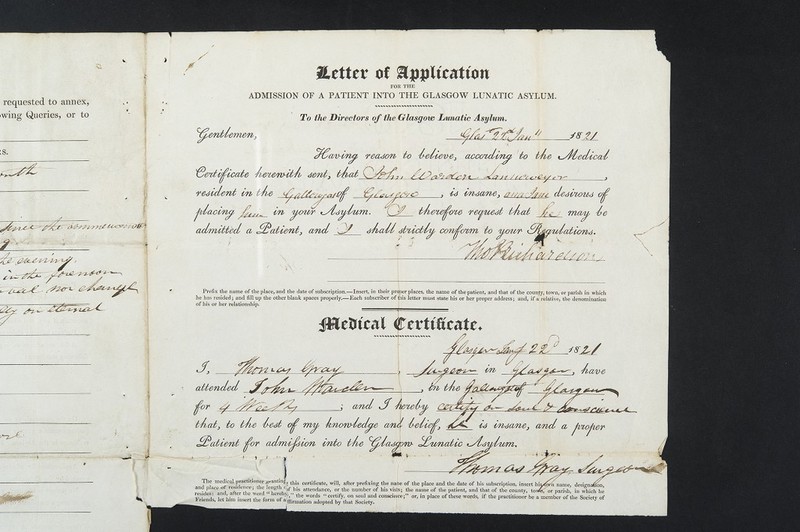 requested to annex,
owing Queries, or to
rs.
the evening.
in the forenoon
nor change
on eternal
Letter of Application
FOR THE
ADMISSION OF A PATIENT INTO THE GLASGOW LUNATIC ASYLUM.
To the Directors of the Glasgow Lunatic Asylum.
Gentlemen, 1821
Having reason to believe, according to the Medical
Certificate herewith sent, that John Warden
resident in the of Glasgow, is insane, desirous of
placing him in your Asylum. I therefore request that he may be
admitted a Patient, and I shall strictly conform to your Regulations.
Thos Richardson
Prefix the name of the place, and the date of subscription.—Insert, in their proper places, the name of the patient, and that of the county, town, or parish in which
he has resided; and fill up the other blank spaces properly.—Each subscriber of this letter must state his or her proper address; and, if a relative, the denomination
of his or her relationship.
Medical Certificate.
Glasgow Jany 22d 1821
I, Thomas Gray, Surgeon in Glasgow, have
attended John Warden, in the of Glasgow
for 4 Weeks; and I hereby certify on soul & conscience
that, to the best of my knowledge and belief, he is insane, and a proper
Patient for admission into the Glasgow Lunatic Asylum.
Thomas Gray Surgeon
The medical practitioner granting this certificate, will, after prefixing the name of the place and the date of his subscription, insert his own name, designation,
and place of residence; the length of his attendance, or the number of his visits; the name of the patient, and that of the county, town, or parish, in which he
resided: and, after the word "hereby," the words "certify, on soul and conscience;" or, in place of these words, if the practitioner be a member of the Society of
Friends, let him insert the form of affirmation adopted by that Society.